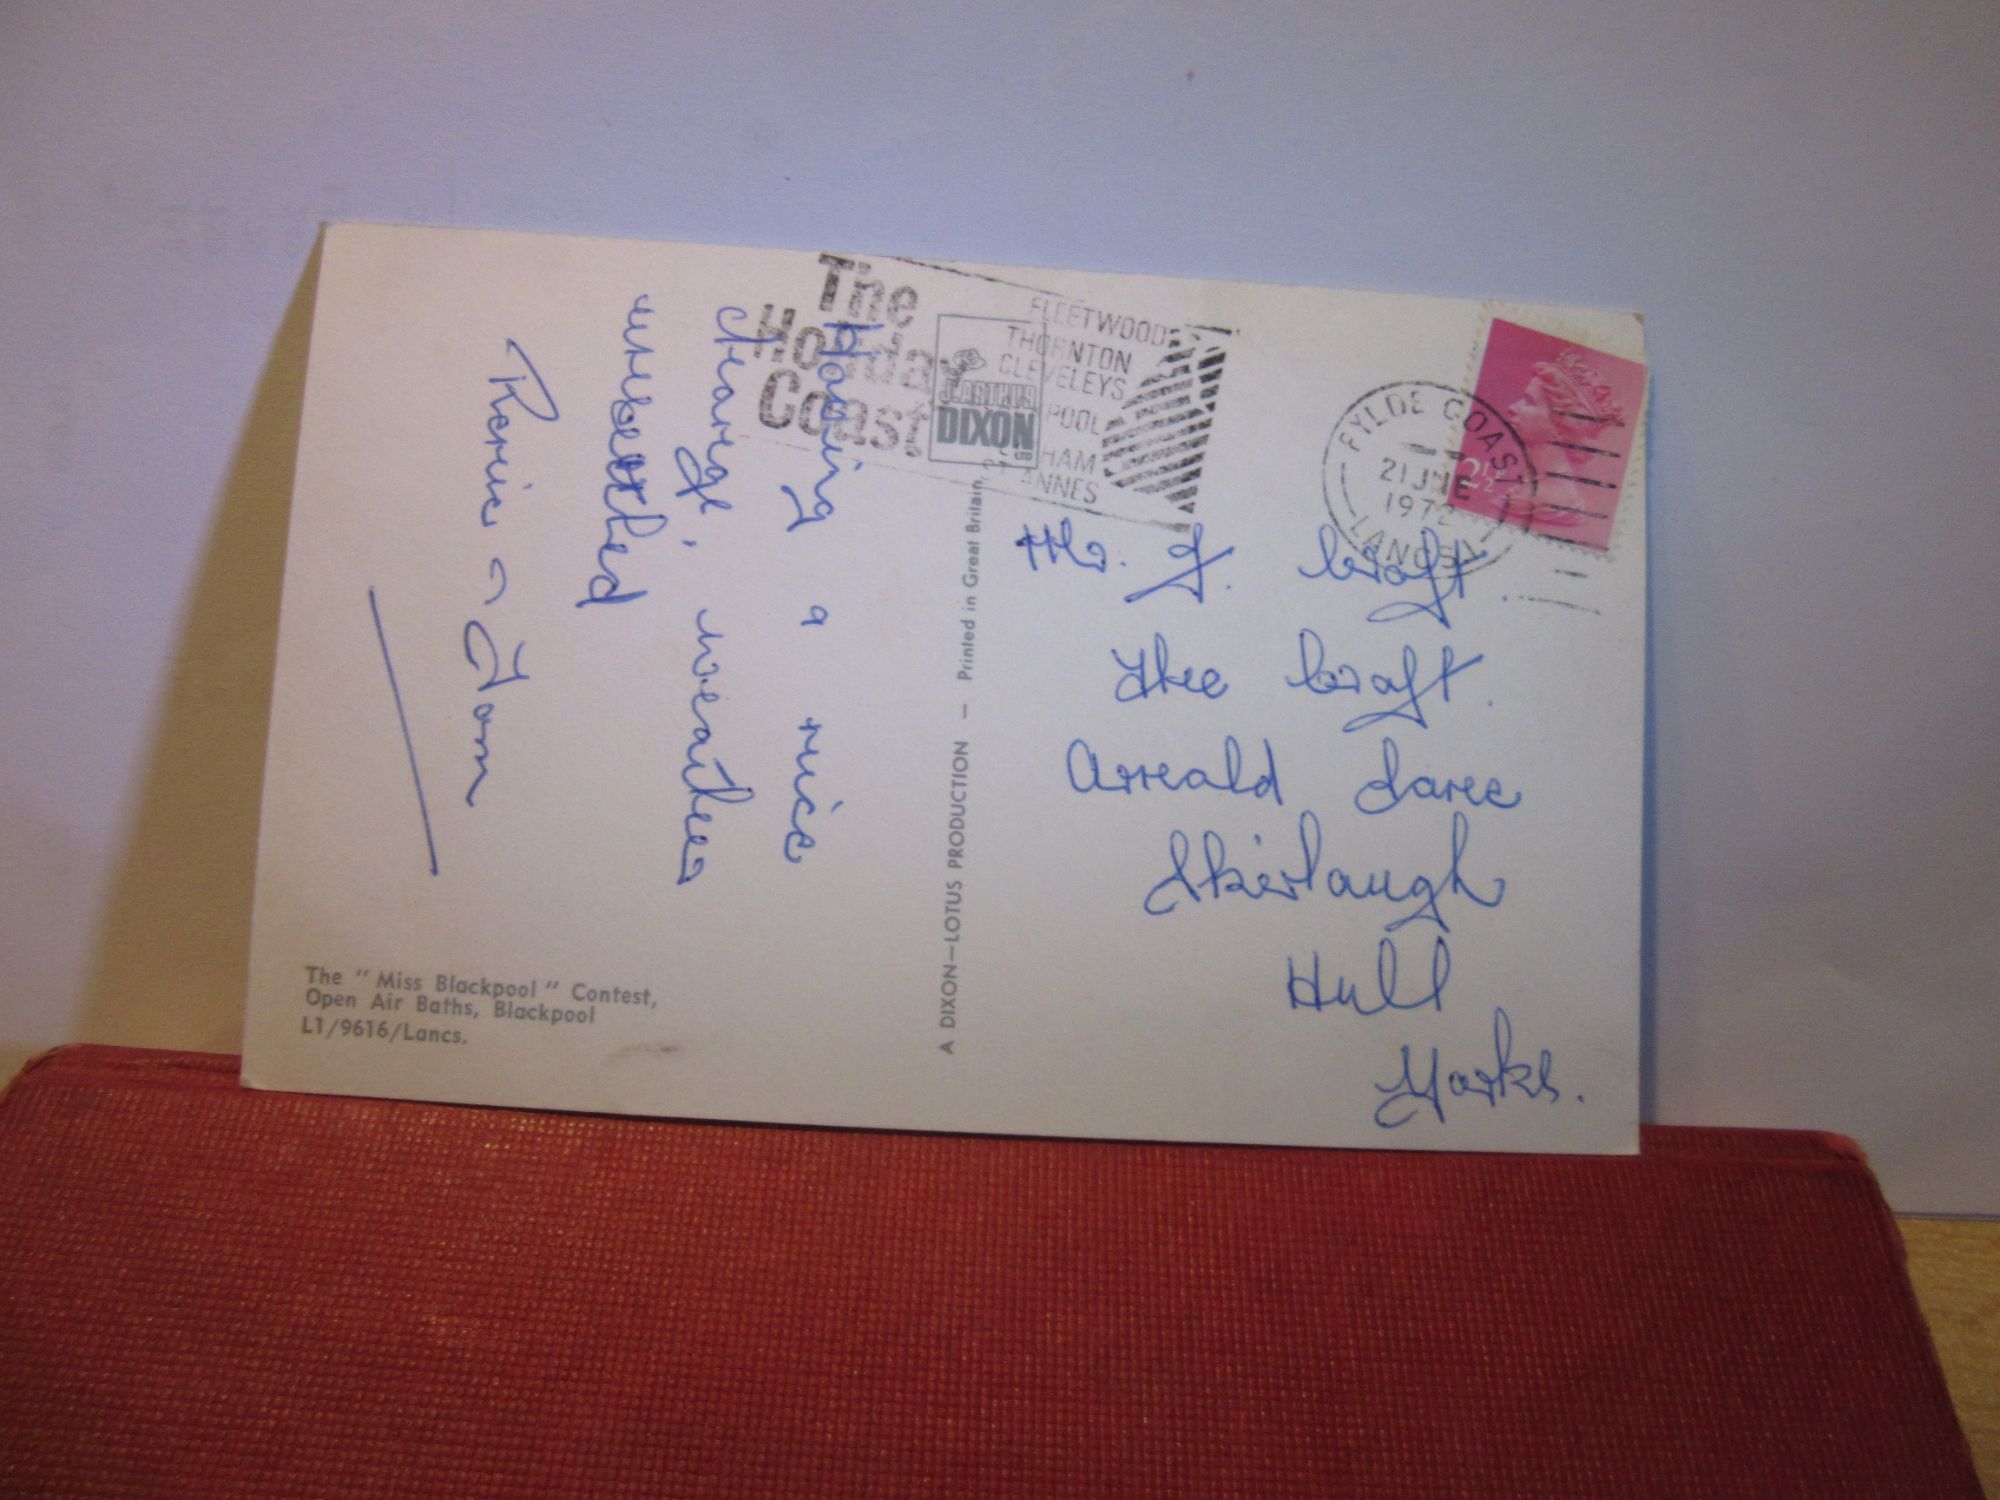 The
Holiday
Coast
FLEETWOOD
THORNTON
CLEVELEYS
POOL
HAM
ST ANNES
FYLDE COAST
21 JUNE
1972
LANCS
2½
J. ARTHUR
DIXON
LTD
Having a nice
change, weather
unsettled
Tom
Mr. J. Croft.
The Croft.
Arnold Lane
Skirlaugh
Hull
Yorks.
A DIXON-LOTUS PRODUCTION - Printed in Great Britain.
The "Miss Blackpool" Contest,
Open Air Baths, Blackpool
L1/9616/Lancs.